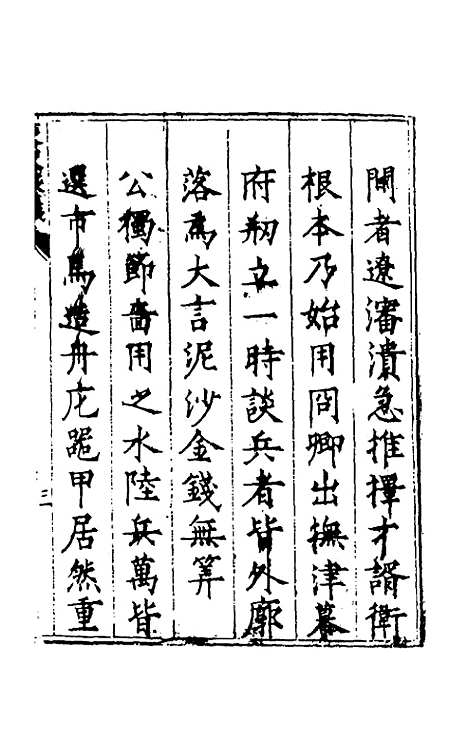 間者遼瀋潰急推擇才諝衛
根本乃始用冏卿出撫津幕
府刱立一時談兵者皆外廓
落爲大言泥沙金錢無筭
公獨節嗇用之水陸兵萬皆
選市馬造舟庀䤨甲居然重
三